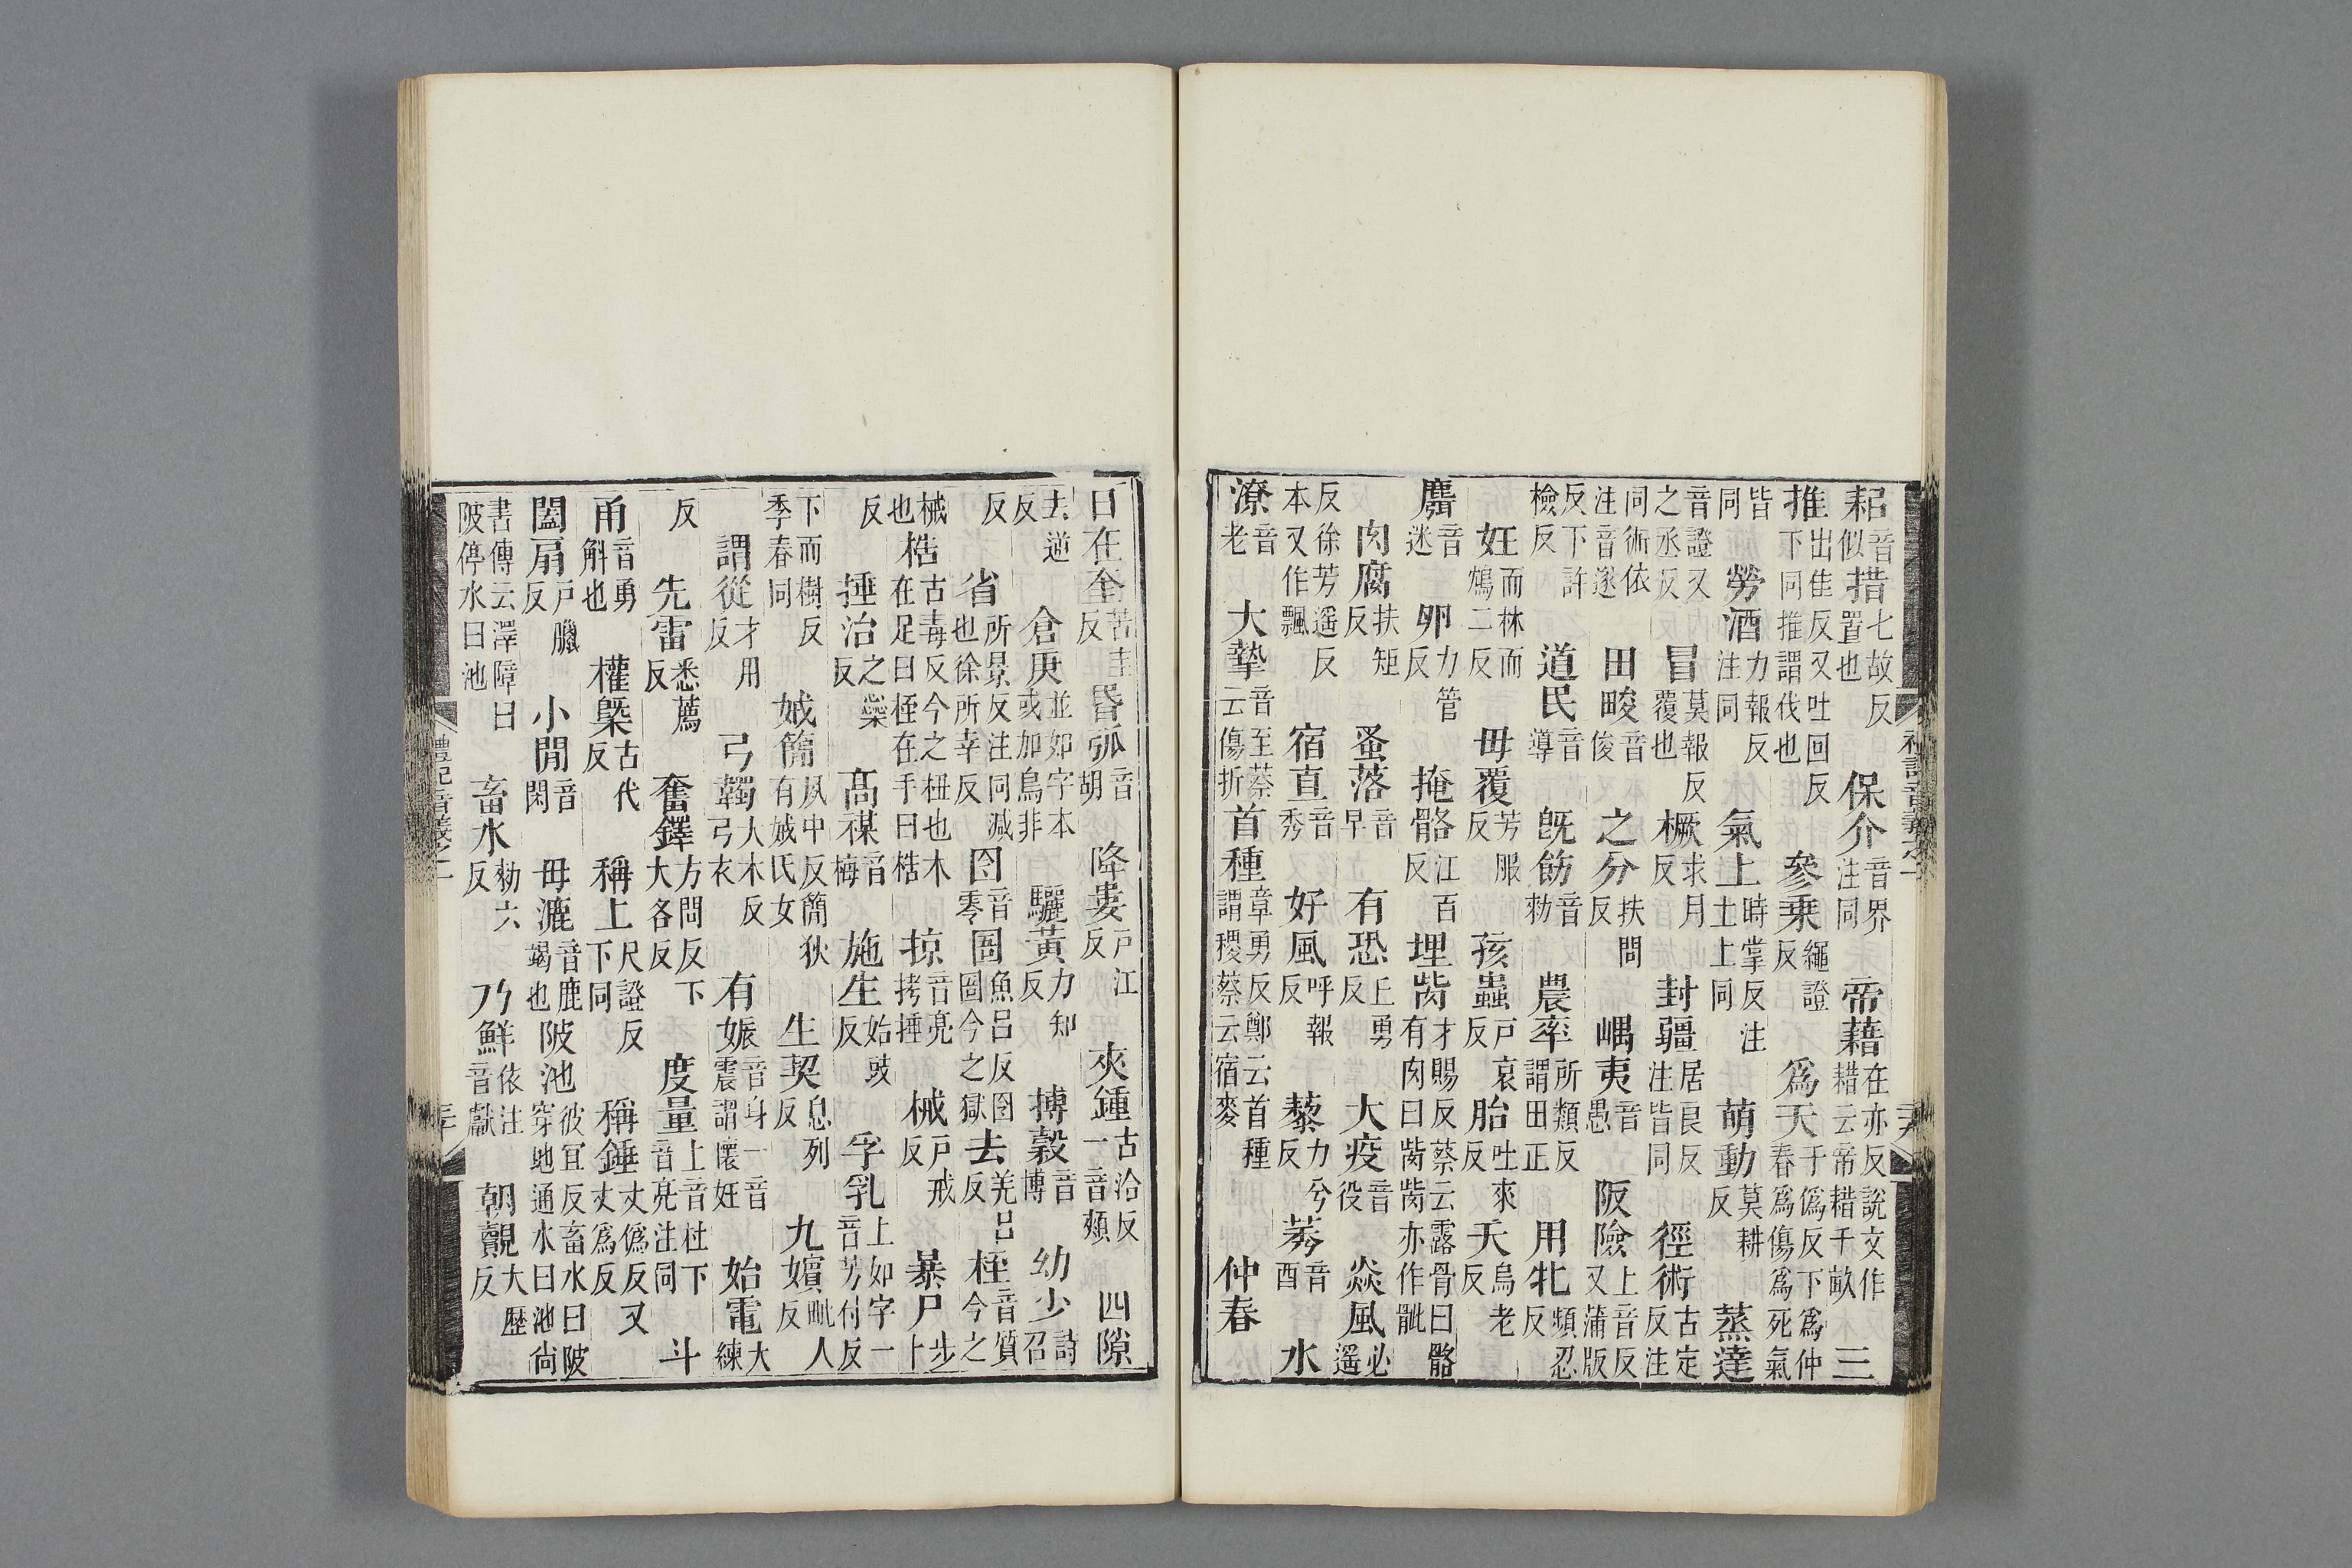 耜音似措七故反置也保介音界注同帝藉在亦反說文作耤云帝耤千畝三
推出隹反又吐回反下同推謂伐也參乘繩證反爲天于僞反下爲仲春爲傷爲死氣
皆同勞酒力報反注同氣上時掌反注土上同萌動莫耕反蒸達
音證又之丞反冒莫報反覆也橛求月反封疆居良反注皆同徑術古定反注
同術依注音遂田畯音俊之分扶問反嵎夷音愚阪險上音反又蒲版
反下許檢反道民音導旣飭音勑農率所類反謂田正用牝頻忍反
妊而林而鴆二反毋覆芳服反孩蟲戸哀反胎吐來反夭烏老反
麛音迷卵力管反掩骼江百反埋胔才賜反蔡云露骨曰骼有肉曰胔胔亦作骴
肉腐扶矩反蚤落音早有恐丘勇反大疫音役猋風必遥
反徐芳遥反本又作飄宿直音秀好風呼報反藜力兮反莠音酉水
潦音老大摯音至蔡云傷折首種章勇反鄭云首種謂稷蔡云宿麥仲春
日在奎苦圭反昏弧音胡降婁戸江反夾鍾古洽反一音頰四隙
去逆反倉庚並如字本或加鳥非驪黃力知反搏穀音博幼少詩召
反省所景反注同減也徐所幸反囹音零圄魚呂反囹圄今之獄去羌呂反桎音質今之
械也梏古毒反今之杻也木在足曰桎在手曰梏掠音亮拷捶械戸戒反暴尸步卜
反捶治之蘂反高禖音梅施生始豉反孚乳上如字一音芳付反
下而樹反季春同娀簡夙中反簡狄有娀氏女生契息列反九嬪毗人反
謂從才用反弓韣大木反弓衣有娠音身一音震謂懷妊始電大練
反先雷悉薦反奮鐸方問反下大各反度量上音杜下音亮注同斗
甬音勇斛也權槩古代反稱上尺證反下同稱錘丈僞反又丈爲反
闔扇戸臘反小閒音閑毋漉音鹿竭也陂池彼冝反畜水曰陂穿地通水曰池尙
書傳云澤障曰陂停水曰池畜水勑六反乃鮮依注音獻朝覿大歷反